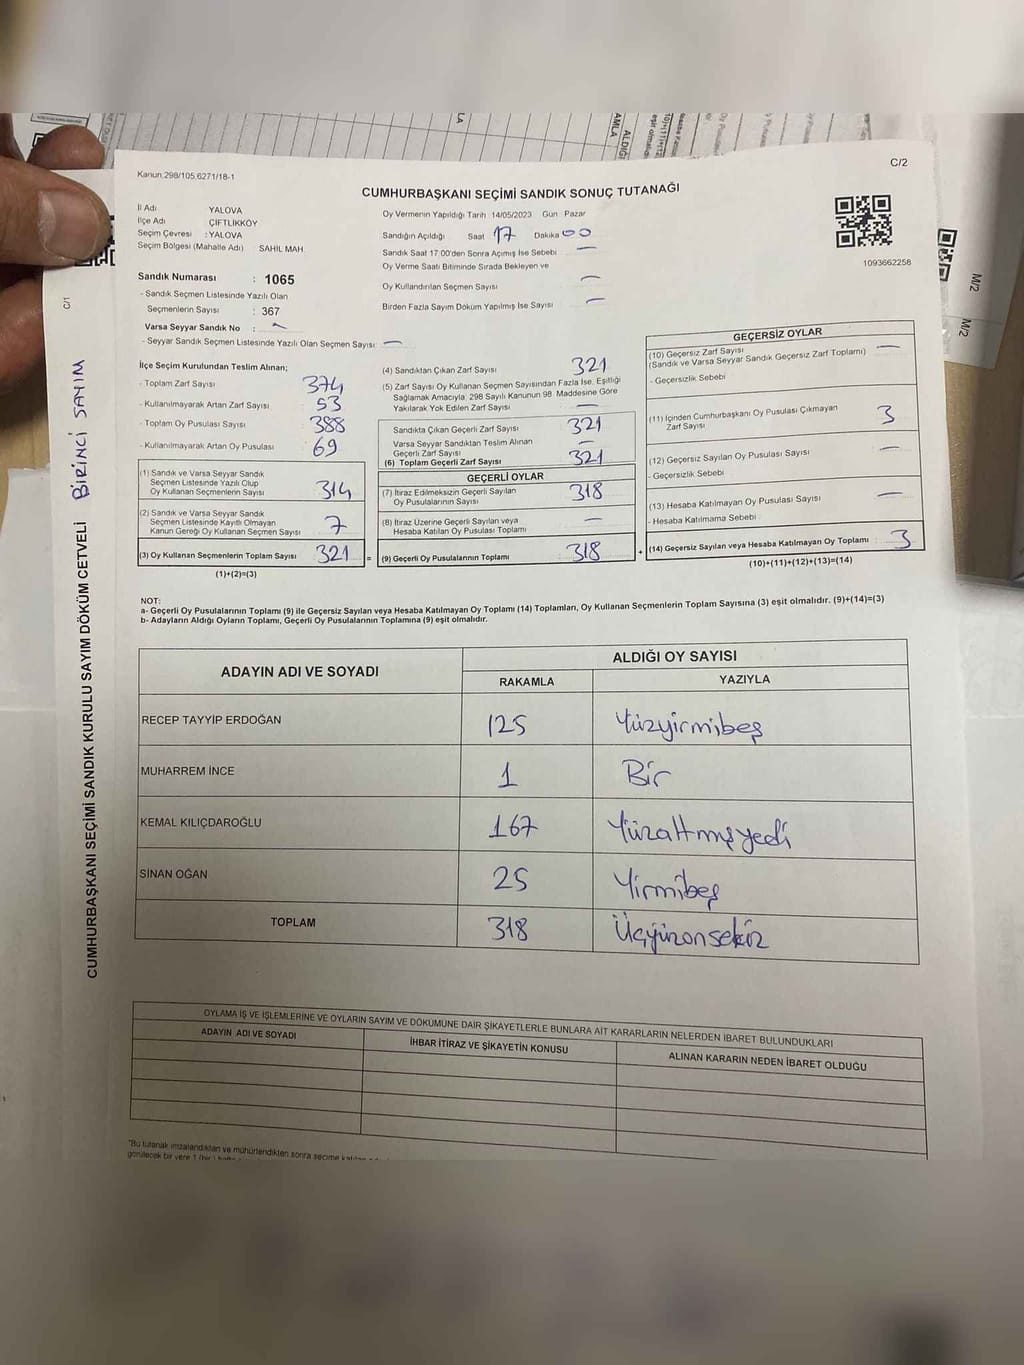 C/2
Kanun.298/105.6271/18-1
CUMHURBAŞKANI SEÇİMİ SANDIK SONUÇ TUTANAĞI
İl Adı YALOVA
İlçe Adı ÇİFTLİKKÖY
Seçim Çevresi : YALOVA
Seçim Bölgesi (Mahalle Adı) SAHİL MAH.
Sandık Numarası : 1065
- Sandık Seçmen Listesinde Yazılı Olan
Seçmenlerin Sayısı : 367
Varsa Seyyar Sandık No : -
- Seyyar Sandık Seçmen Listesinde Yazılı Olan Seçmen Sayısı: -
Oy Vermenin Yapıldığı Tarih 14/05/2023 Gün : Pazar
Sandığın Açıldığı Saat 17 Dakika 00
Sandık Saat 17.00'den Sonra Açımış İse Sebebi -
Oy Verme Saati Bitiminde Sırada Bekleyen ve
Oy Kullandırılan Seçmen Sayısı -
Birden Fazla Sayım Döküm Yapılmış İse Sayısı -
1093662258
İlçe Seçim Kurulundan Teslim Alınan;
- Toplam Zarf Sayısı 374
- Kullanılmayarak Artan Zarf Sayısı 53
- Toplam Oy Pusulası Sayısı 388
- Kullanılmayarak Artan Oy Pusulası 69
(1) Sandık ve Varsa Seyyar Sandık
Seçmen Listesinde Yazılı Olup
Oy Kullanan Seçmenlerin Sayısı 314
(2) Sandık ve Varsa Seyyar Sandık
Seçmen Listesinde Kayıtlı Olmayan
Kanun Gereği Oy Kullanan Seçmen Sayısı 7
(3) Oy Kullanan Seçmenlerin Toplam Sayısı 321 =
(1)+(2)=(3)
(4) Sandıktan Çıkan Zarf Sayısı 321
(5) Zarf Sayısı Oy Kullanan Seçmen Sayısından Fazla İse, Eşitliği
Sağlamak Amacıyla, 298 Sayılı Kanunun 98. Maddesine Göre
Yakılarak Yok Edilen Zarf Sayısı -
Sandıkta Çıkan Geçerli Zarf Sayısı 321
Varsa Seyyar Sandıktan Teslim Alınan
Geçerli Zarf Sayısı -
(6) Toplam Geçerli Zarf Sayısı 321
GEÇERLİ OYLAR
(7) İtiraz Edilmeksizin Geçerli Sayılan
Oy Pusulalarının Sayısı 318
(8) İtiraz Üzerine Geçerli Sayılan veya
Hesaba Katılan Oy Pusulası Toplamı -
(9) Geçerli Oy Pusulalarının Toplamı 318 +
GEÇERSİZ OYLAR
(10) Geçersiz Zarf Sayısı -
(Sandık ve Varsa Seyyar Sandık Geçersiz Zarf Toplamı)
- Geçersizlik Sebebi
(11) İçinden Cumhurbaşkanı Oy Pusulası Çıkmayan
Zarf Sayısı 3
(12) Geçersiz Sayılan Oy Pusulası Sayısı -
- Geçersizlik Sebebi
(13) Hesaba Katılmayan Oy Pusulası Sayısı -
- Hesaba Katılmama Sebebi
(14) Geçersiz Sayılan veya Hesaba Katılmayan Oy Toplamı : 3
(10)+(11)+(12)+(13)=(14)
NOT:
a- Geçerli Oy Pusulalarının Toplamı (9) ile Geçersiz Sayılan veya Hesaba Katılmayan Oy Toplamı (14) Toplamları, Oy Kullanan Seçmenlerin Toplam Sayısına (3) eşit olmalıdır. (9)+(14)=(3)
b- Adayların Aldığı Oyların Toplamı, Geçerli Oy Pusulalarının Toplamına (9) eşit olmalıdır.
ADAYIN ADI VE SOYADI ALDIĞI OY SAYISI
RAKAMLA YAZIYLA
RECEP TAYYİP ERDOĞAN 125 Yüzyirmibeş
MUHARREM İNCE 1 Bir
KEMAL KILIÇDAROĞLU 167 Yüzaltmışyedi
SİNAN OĞAN 25 Yirmibeş
TOPLAM 318 Üçyüzonsekiz
OYLAMA İŞ VE İŞLEMLERİNE VE OYLARIN SAYIM VE DÖKÜMÜNE DAİR ŞİKAYETLERLE BUNLARA AİT KARARLARIN NELERDEN İBARET BULUNDUKLARI
ADAYIN ADI VE SOYADI İHBAR İTİRAZ VE ŞİKAYETİN KONUSU ALINAN KARARIN NEDEN İBARET OLDUĞU
"Bu tutanak imzalandıktan ve mühürlendikten sonra seçime
görülecek bir yere 1 (bir)
C/1
CUMHURBAŞKANI SEÇİMİ SANDIK KURULU SAYIM DÖKÜM CETVELİ BİRİNCİ SAYIM
M/2
M/2
ALDIĞI